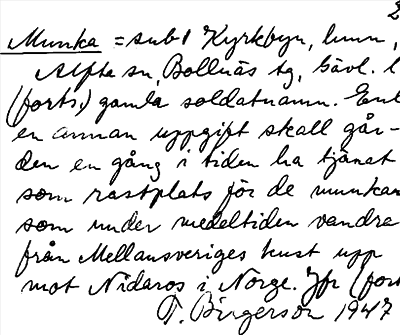 2
Munka = sub1 Kyrkbyn, hmn,
Alfta sn, Bollnäs tg, Gävl. l
(forts.) gamla soldatnamn. Enl
en annan uppgift skall går-
den en gång i tiden ha tjänat
som rastplats för de munkar
som under medeltiden vandra
från Mellansveriges kust upp
mot Nidaros i Norge. Jfr (fort
T. Birgerson 1947